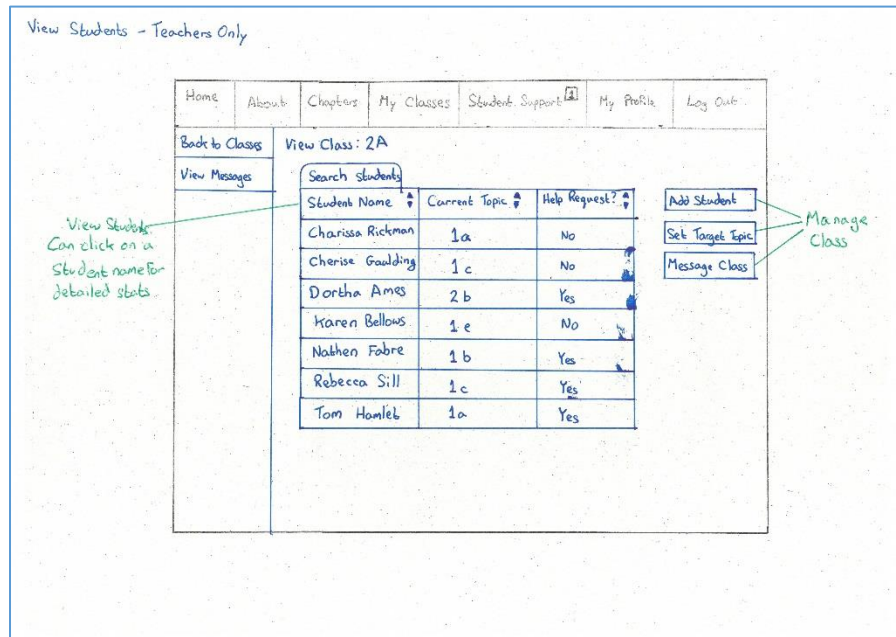 View Students - Teachers Only
Home About Chapters My Classes Student Support 1 My Profile Log Out
Back to Classes
View Messages
View Class: 2A
Search Students
Student Name Current Topic Help Request?
Charissa Rickman 1a No
Cherise Gaulding 1c No
Dortha Ames 2b Yes
Karen Bellows 1e No
Nathen Fabre 1b Yes
Rebecca Sill 1c Yes
Tom Hamlet 1a Yes
Add Student
Set Target Topic
Message Class
View Students.
Can click on a
Student name for
detailed stats.
Manage
Class